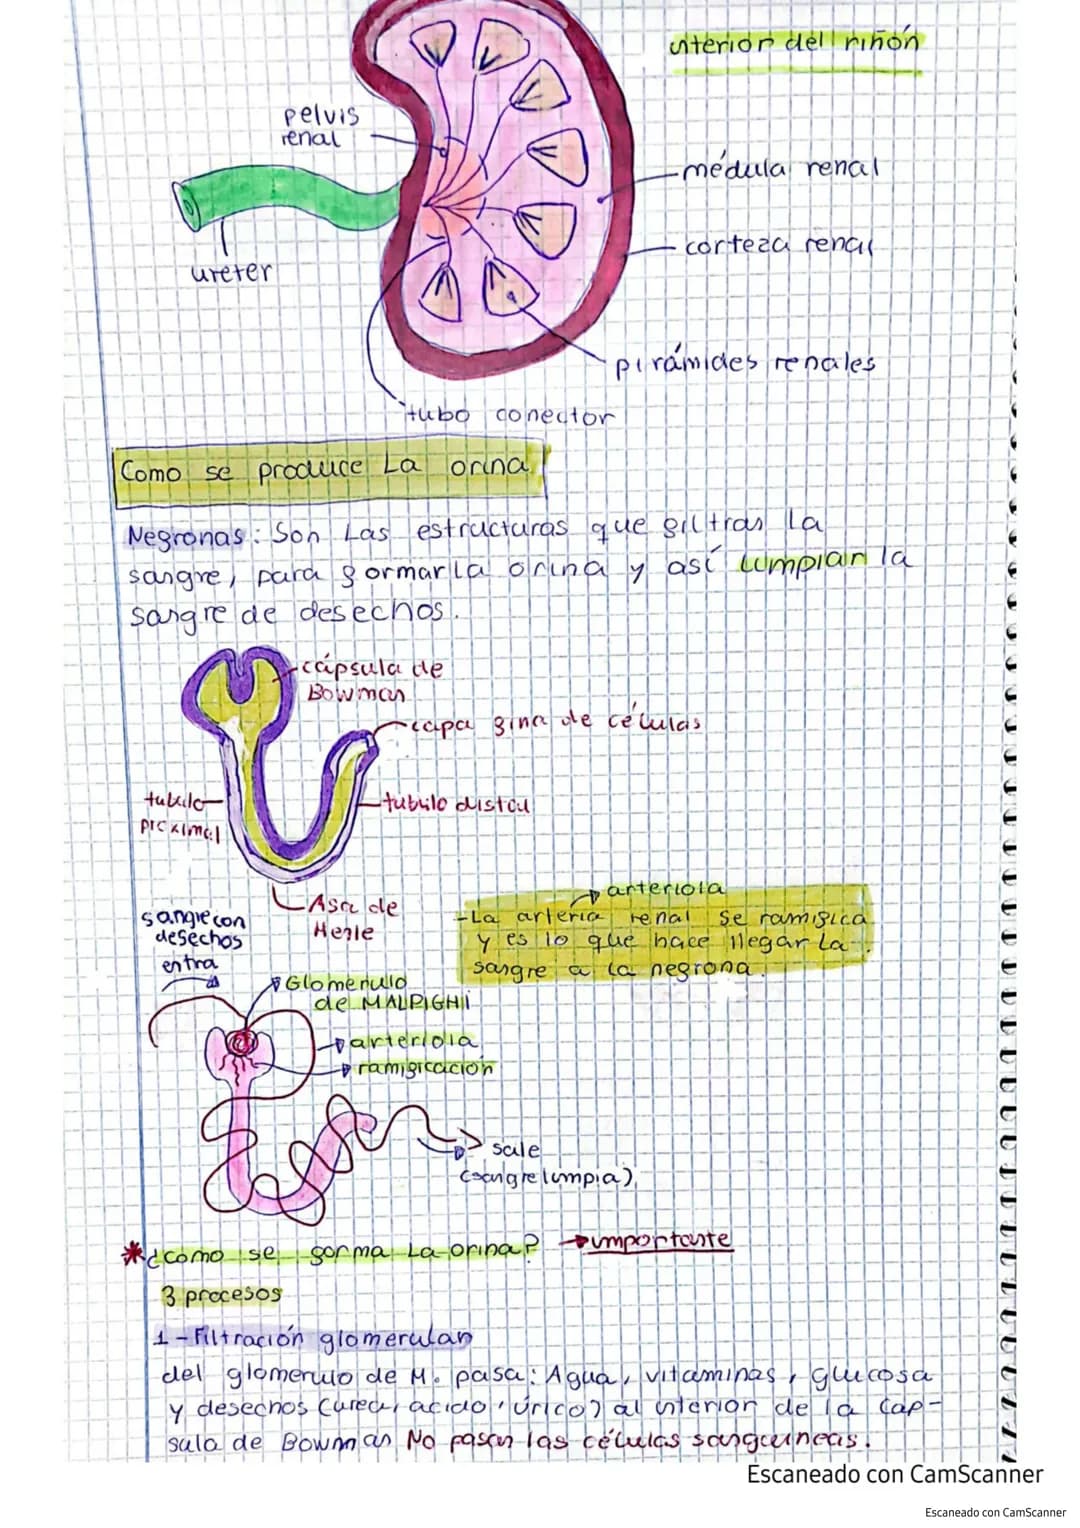 interior del riñón
pelvis
renal
médula renal
corteza renal
ureter
pirámides renales
tubo conector
Como se produce La orina
Negronas: Son Las estructuras que filtran La
sangre, para formar la orina y así limpian la
sangre de desechos.
cápsula de
Bowman
capa fina de células
tubulo
proximal
tubulo distal
Asa de
Henle
sangre con
desechos
entra
arteriola
-La arteria renal se ramifica
y es lo que hace llegar La
sangre a la negrona.
Glomerulo
de MALPIGHI
arteriola
ramificación
sale
(sangre limpia)
*¿Cómo se forma La orina? → importante
3 procesos
1-Filtración glomerular
del glomerulo de M. pasa: Agua, vitaminas, glucosa
y desechos (urea, acido úrico) al interior de la Cap-
sula de Bowman No pasan las células sanguineas.
Escaneado con CamScanner
Escaneado con CamScanner